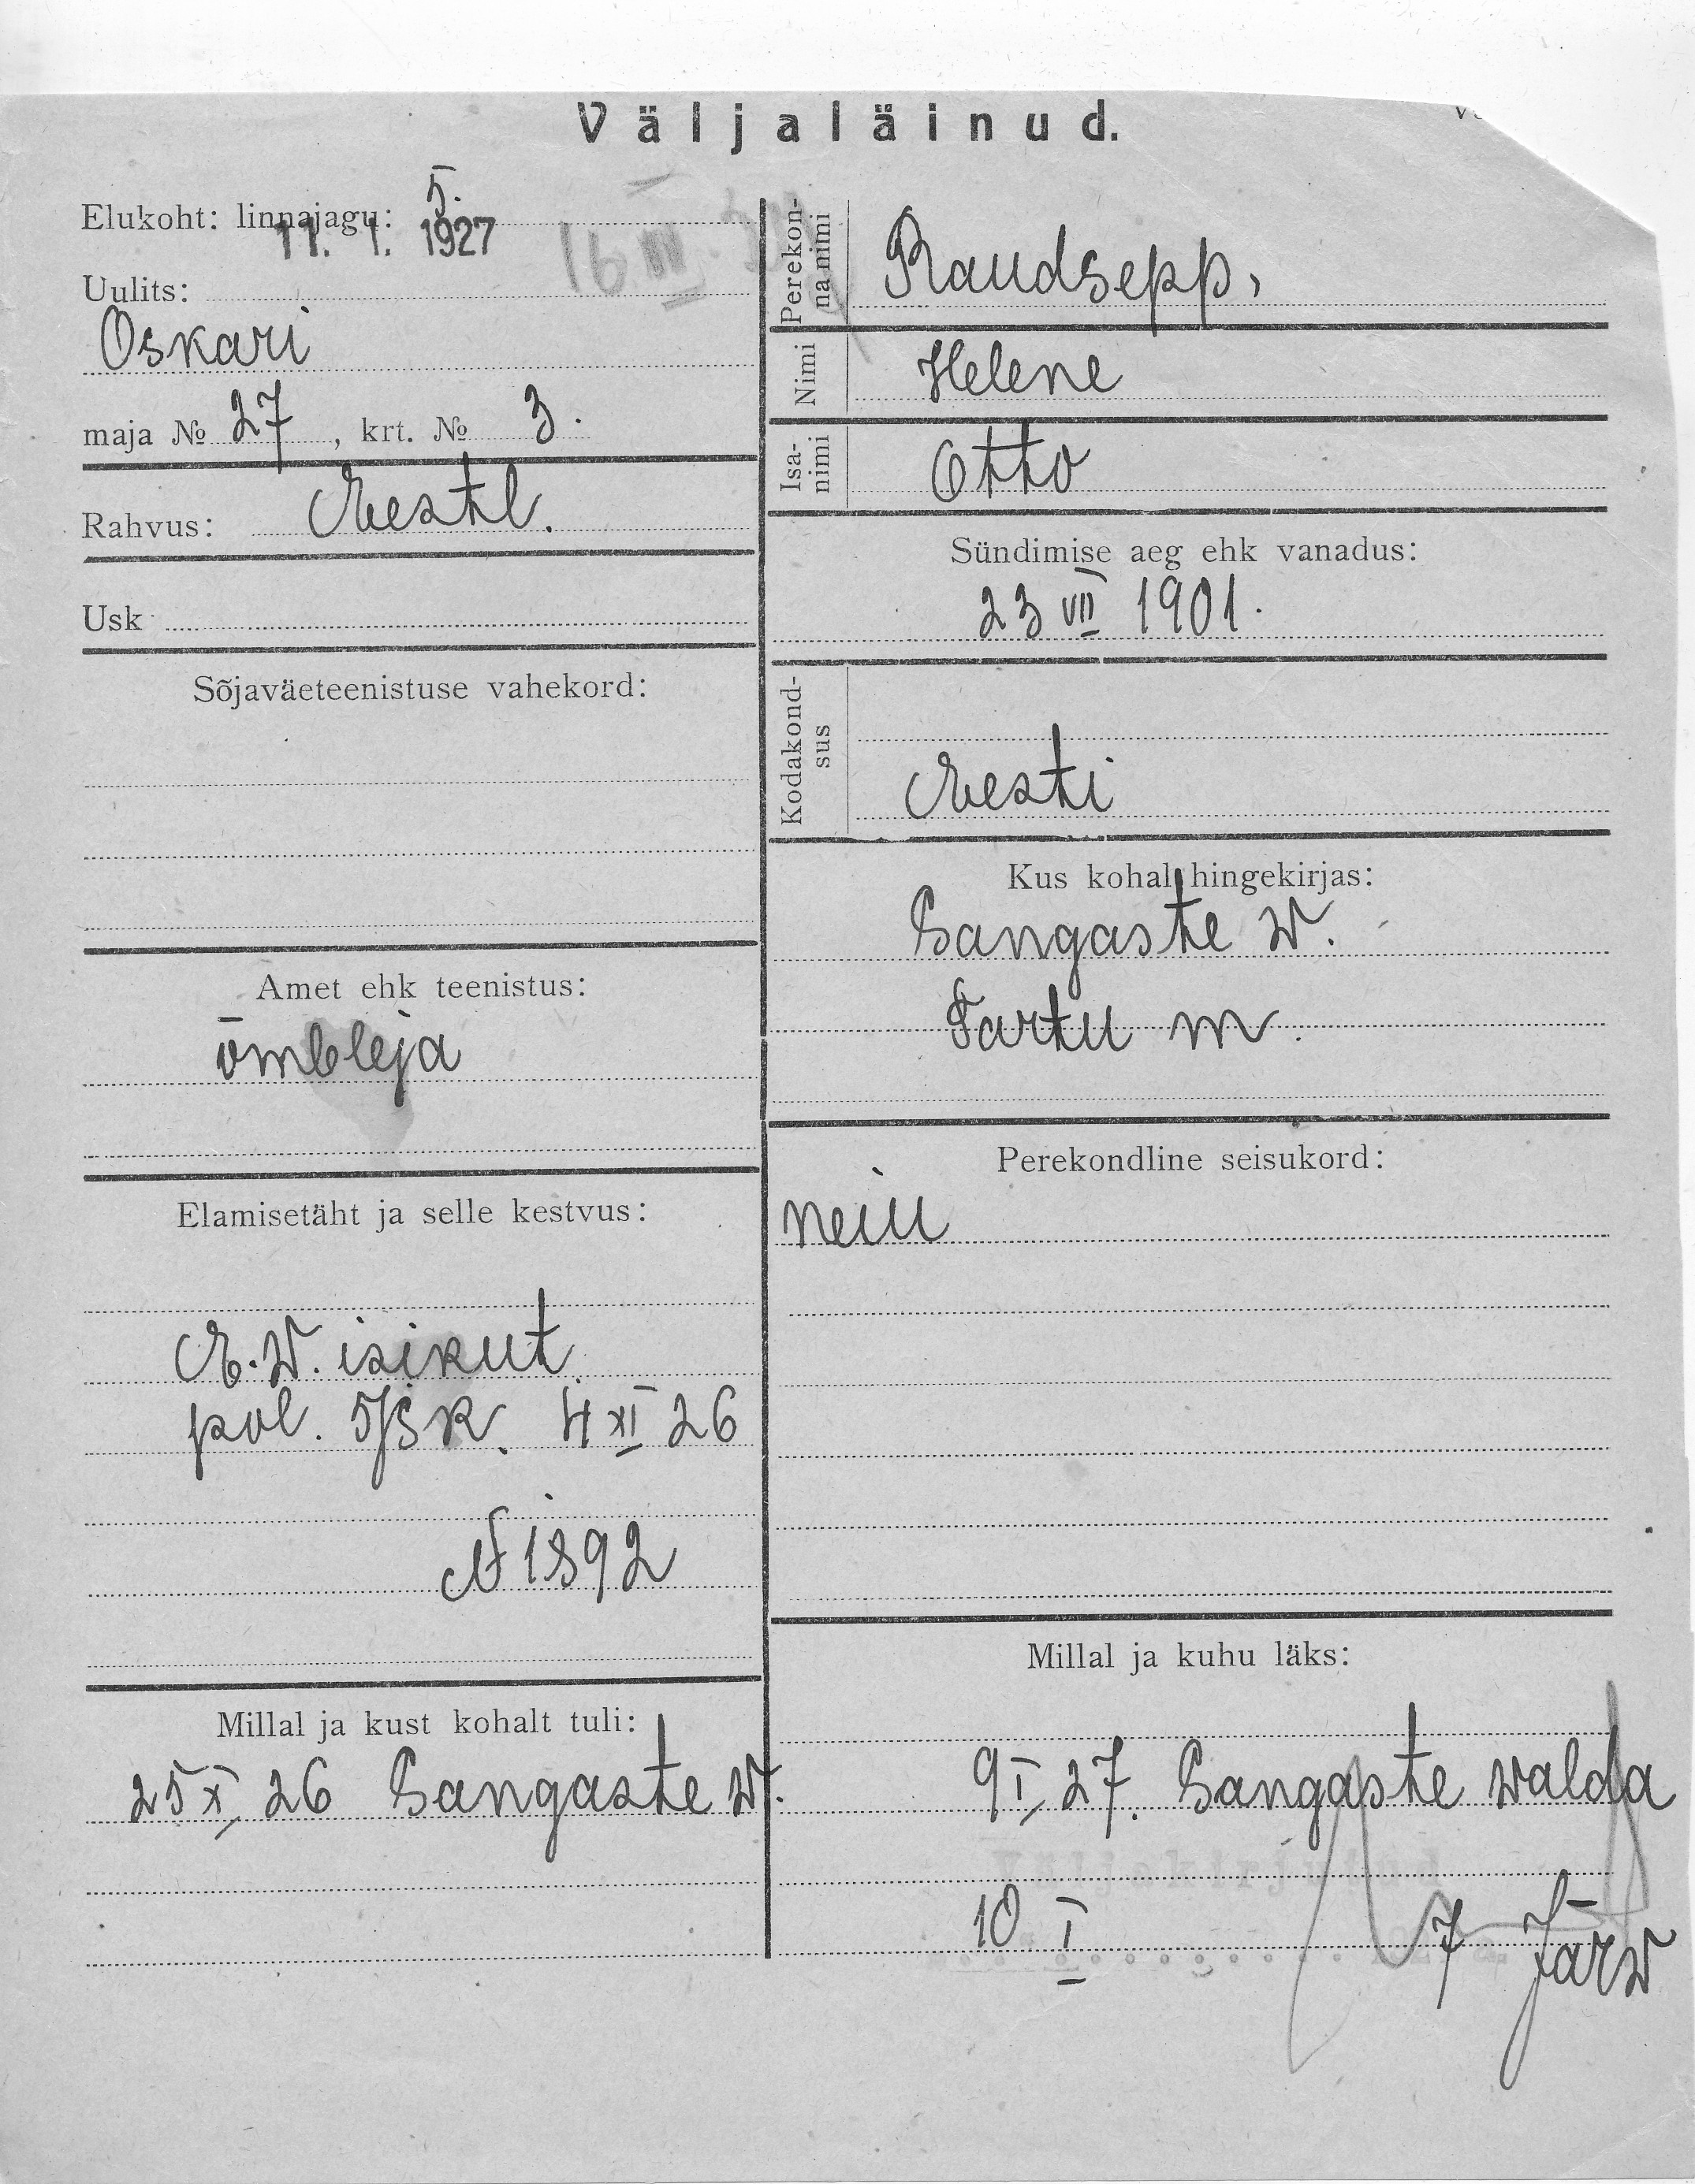 Väljaläinud.
Elukoht: linnajagu: 5.
11. 1. 1927
16 III
Uulits:
Oskari
maja № 27, krt. № 3.
Rahvus: Eestl.
Usk
Sõjaväeteenistuse vahekord:
Amet ehk teenistus:
õmbleja
Elamisetäht ja selle kestvus:
E.W. isikut
pol. 5/JSK. 4 XI 26
N 1892
Millal ja kust kohalt tuli:
25 X 26 Sangaste W.
Perekonnanimi Raudsepp,
Nimi Helene
Isanimi Otto
Sündimise aeg ehk vanadus:
23 VII 1901.
Kodakondsus
Eesti
Kus kohal hingekirjas:
Sangaste W.
Tartu m.
Perekondline seisukord:
neiu
Millal ja kuhu läks:
9 I 27. Sangaste walda
Väljakirjutud
10 I 7 Järw